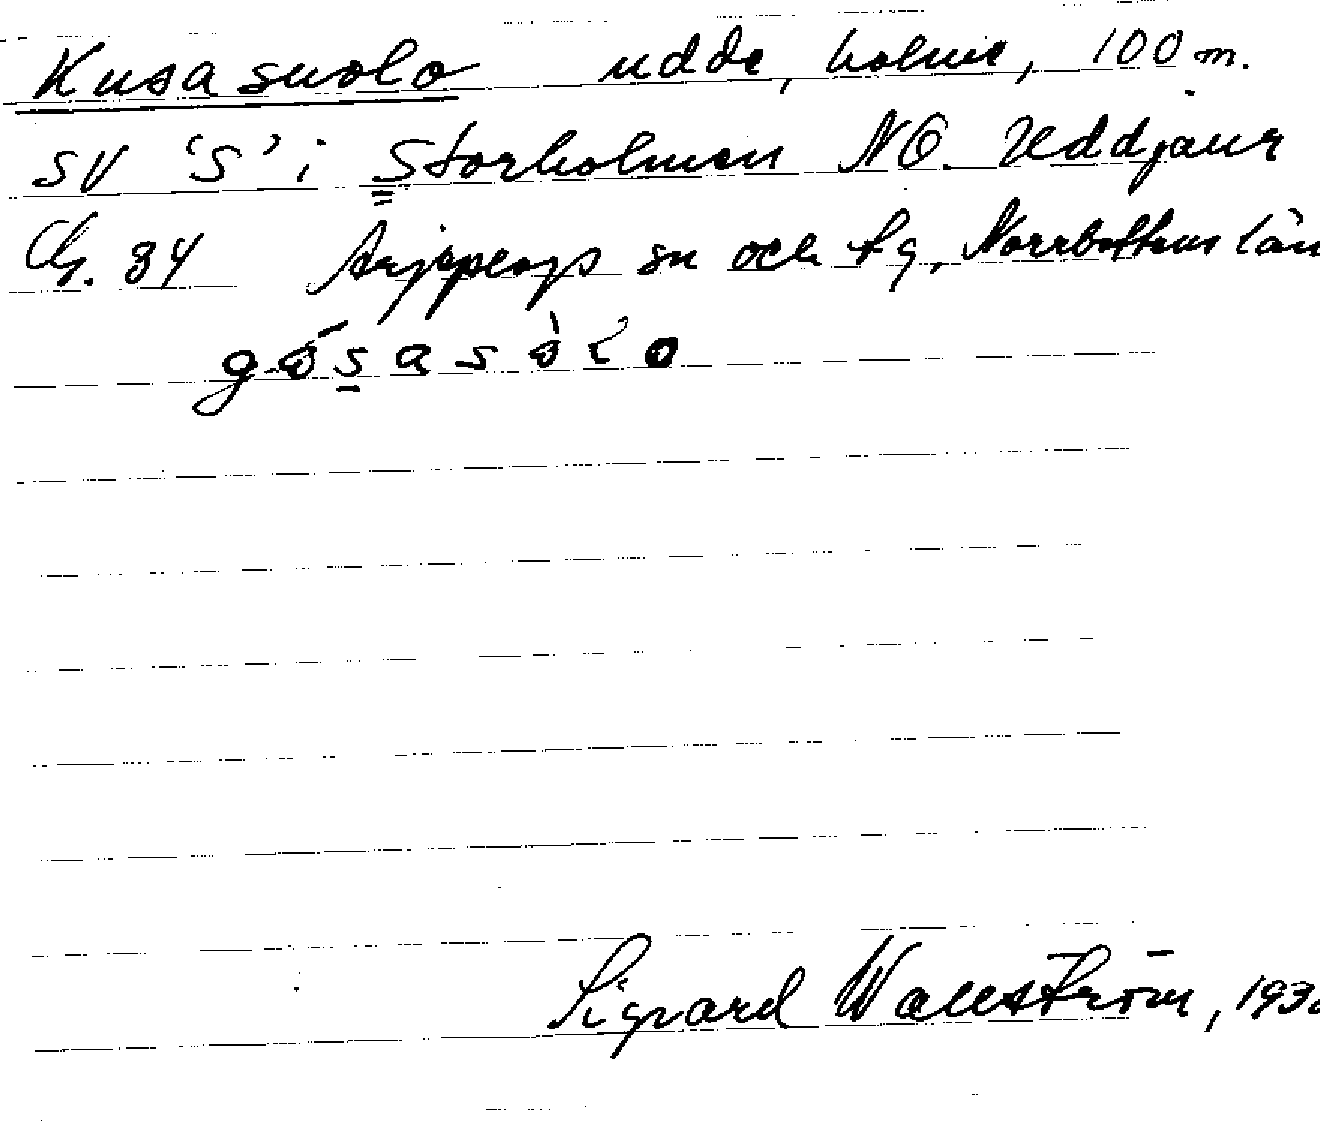 Kusasuolo udde, holme, 100 m.
SV 'S' i Storholmen NO. Uddjaur
34 Arjeplogs sn och tg, Norrbottens län
Sigvard Wallström,